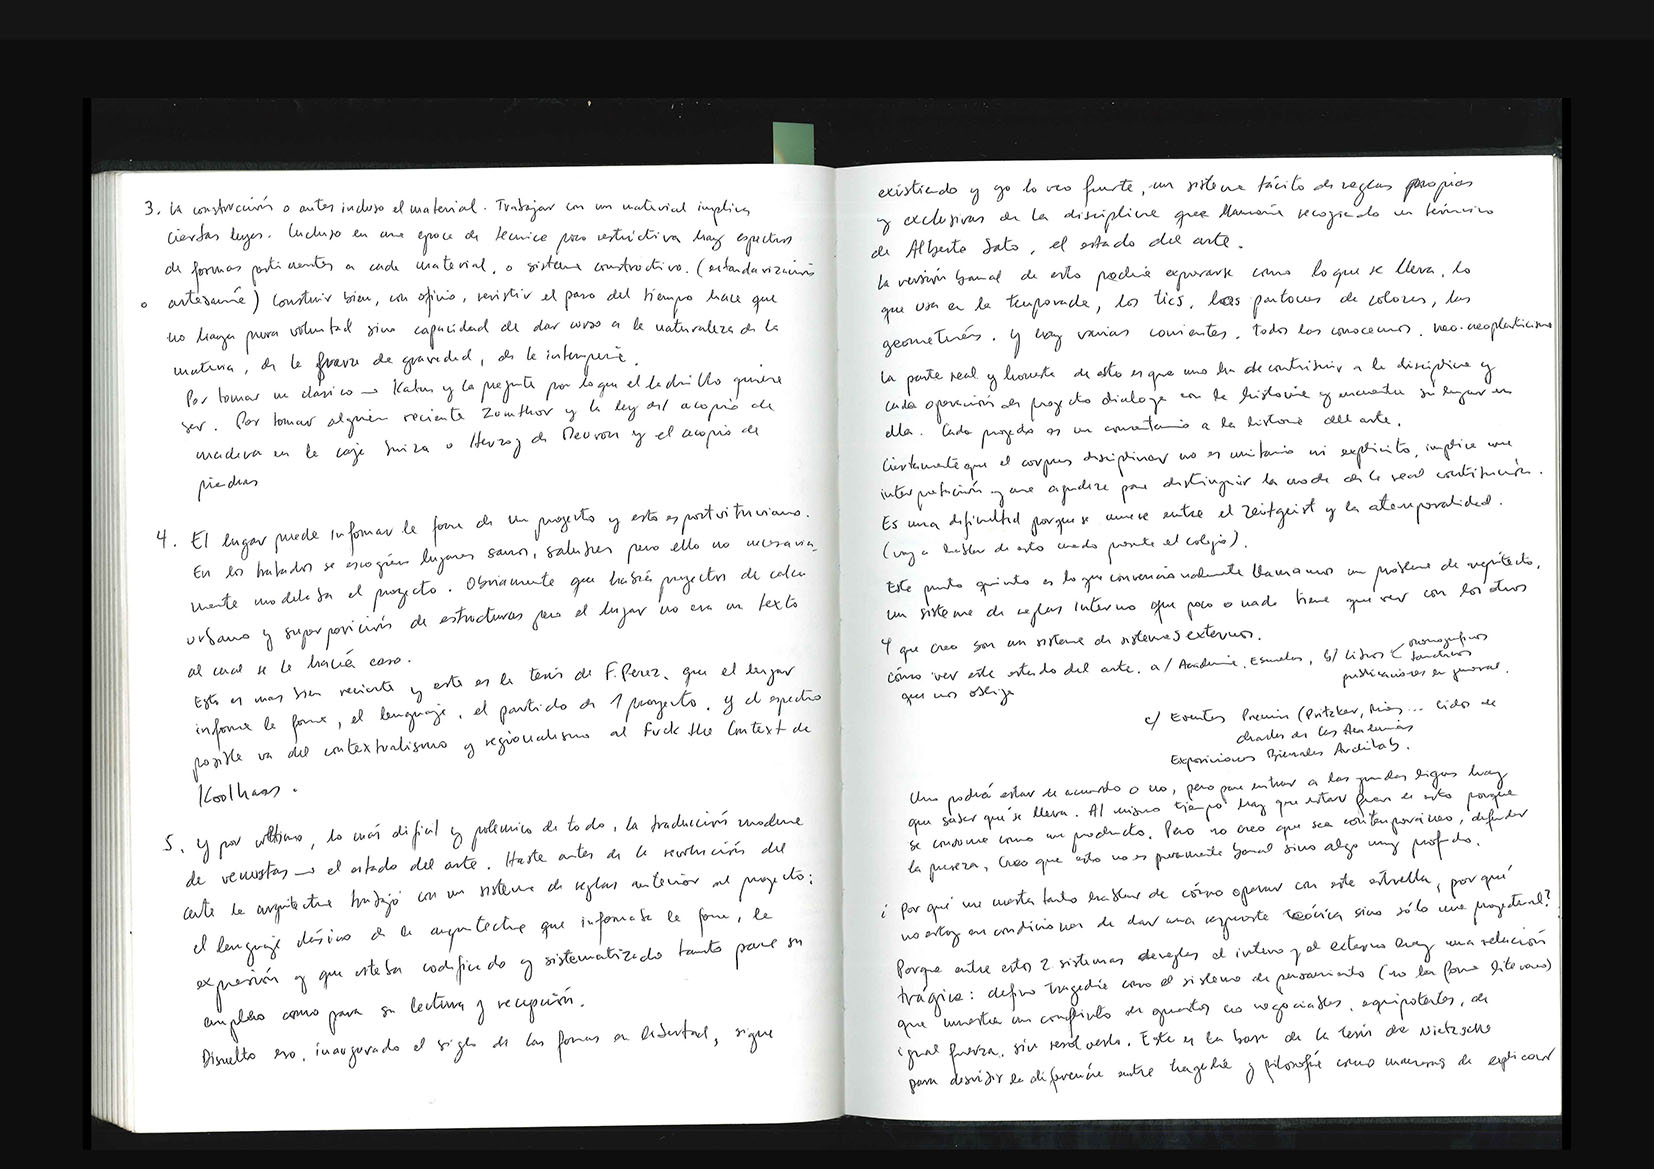 3. La construcción o antes incluso el material. Trabajar con un material implica
ciertas leyes. Incluso en una época de técnica poco restrictiva hay espectros
de formas pertinentes a cada material, o sistema constructivo. (estandarización
o artesanía) Construir bien, con oficio, resistir el paso del tiempo hace que
no haya pura voluntad sino capacidad de dar curso a la naturaleza de la
materia, de la fuerza de gravedad, de la intemperie.
Por tomar un clásico → Kahn y la pregunta por lo que el ladrillo quiere
ser. Por tomar alguien reciente Zumthor y la ley del acopio de
madera en la caja Suiza o Herzog de Meuron y el acopio de
piedras
4. El lugar puede informar la forma de un proyecto y esto es postvitruviano.
En los tratados se escogían lugares sanos, salubres pero ello no necesaria-
mente modelaba el proyecto. Obviamente que había proyectos de calce
urbano y superposición de estructuras pero el lugar no era un texto
al cual se le hacía caso.
Esto es mas bien reciente y esta es la tesis de F. Perez, que el lugar
informe la forma, el lenguaje, el partido de 1 proyecto. Y el espectro
posible va del contextualismo y regionalismo al Fuck the Context de
Koolhaas.
5. Y por último, lo más difícil y polémico de todo, la traducción moderna
de venustas → el estado del arte. Hasta antes de la revolución del
arte la arquitectura trabajó con un sistema de reglas anterior al proyecto:
el lenguaje clásico de la arquitectura que informaba la forma, la
expresión y que estaba codificado y sistematizado tanto para su
empleo como para su lectura y recepción.
Disuelto eso, inaugurado el siglo de las formas en libertad, sigue
existiendo y yo lo veo fuerte, un sistema tácito de reglas propias
y exclusivas de la disciplina que llamaría recogiendo un término
de Alberto Sato, el estado del arte.
La versión banal de esto podría expresarse como lo que se lleva, lo
que usa en la temporada, los tics, los pantones de colores, las
geometrías. Y hay varias corrientes, todos las conocemos. neo-neoplasticismo
La parte real y honesta de esto es que uno ha de contribuir a la disciplina y
cada operación de proyecto dialoga con la historia y encuentra su lugar en
ella. Cada proyecto es un comentario a la historia del arte.
Ciertamente que el corpus disciplinar no es unitario ni explícito, implica una
interpretación y una agudeza para distinguir la moda de la real contribución.
Es una dificultad porque se mueve entre el Zeitgeist y la atemporalidad.
(voy a hablar de esto cuando presente el colegio).
Este punto quinto es lo que convencionalmente llamamos un problema de arquitecto,
un sistema de reglas interno que poco o nada tiene que ver con los otros
4 que creo son un sistema de sistemas externos.
cómo ver este estado del arte. a/ Academia, Escuelas, b/ Libros < monográficos
que nos obliga
publicaciones en general.
c/ Eventos Premios (Pritzker, Mies... Ciclos de
charlas de las Academias
Exposiciones Bienales Archilab.
Uno podrá estar de acuerdo o no, pero para entrar a las grandes ligas hay
que saber qué se lleva. Al mismo tiempo hay que estar fuera de esto porque
se consume como un producto. Pero no creo que sea contemporáneo, defender
la pureza. Creo que esto no es puramente banal sino algo muy profundo.
¿Por qué me cuesta tanto hablar de cómo operar con esta estrella, por qué
no estoy en condiciones de dar una respuesta teórica sino sólo una proyectual?
Porque entre estos 2 sistemas de reglas el interno y el externo hay una relación
trágica: defino tragedia como el sistema de pensamiento (no la forma literaria)
que muestra un conflicto de asuntos no negociables, equipotentes, de
igual fuerza, sin resolverlo. Esta es la base de la tesis de Nietzsche
para describir la diferencia entre tragedia y filosofía como maneras de explicar